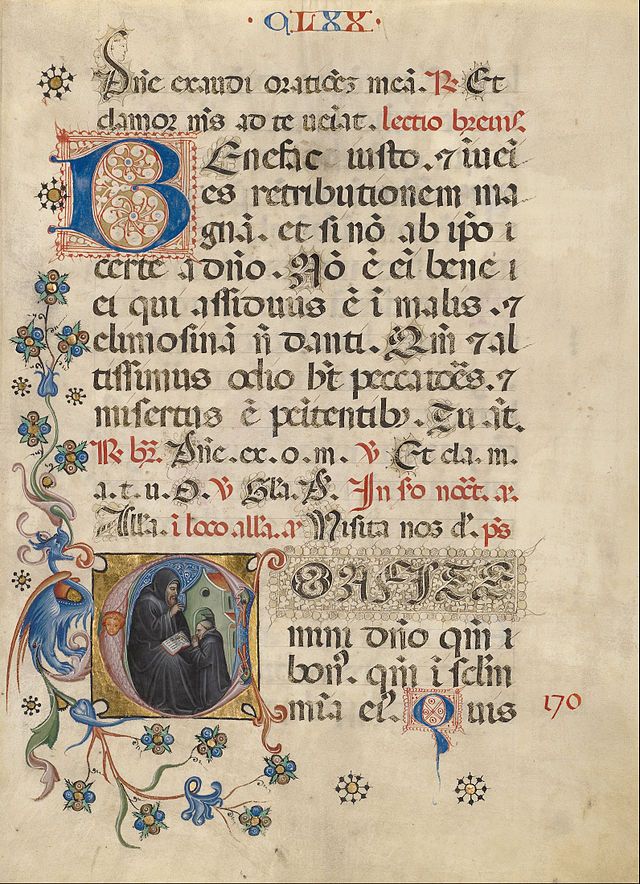 · CLXX ·
Dñe exaudi orationez meā. R. Et
clamor mṡ ad te veiat. lectio brevis.
Benefac iusto. ⁊ invei
es retributionem ma
gnā. et si nō ab ip̄o i
certe a dño. Nō ē ei bene i
ei qui assiduus ē ī malis. ⁊
elimosinā n̄ danti. Qm̄ ⁊ al
tissimus odio ht̄ peccatoēs. ⁊
misertus ē penitentib⁊. Tu aūt.
R. br̄. Dñe. ex. o. m. V Et cla. m.
a. t. u. D. V Gl̄a. P̄. In s̄o noct̄. a.
All̄a. i loco all̄a. a. Misit a nos d̄. ps̄
CONFITE
mini dño qm̄ i
bon⁹. qm̄ ī sclm̄
mia ei⁹. Quis
170